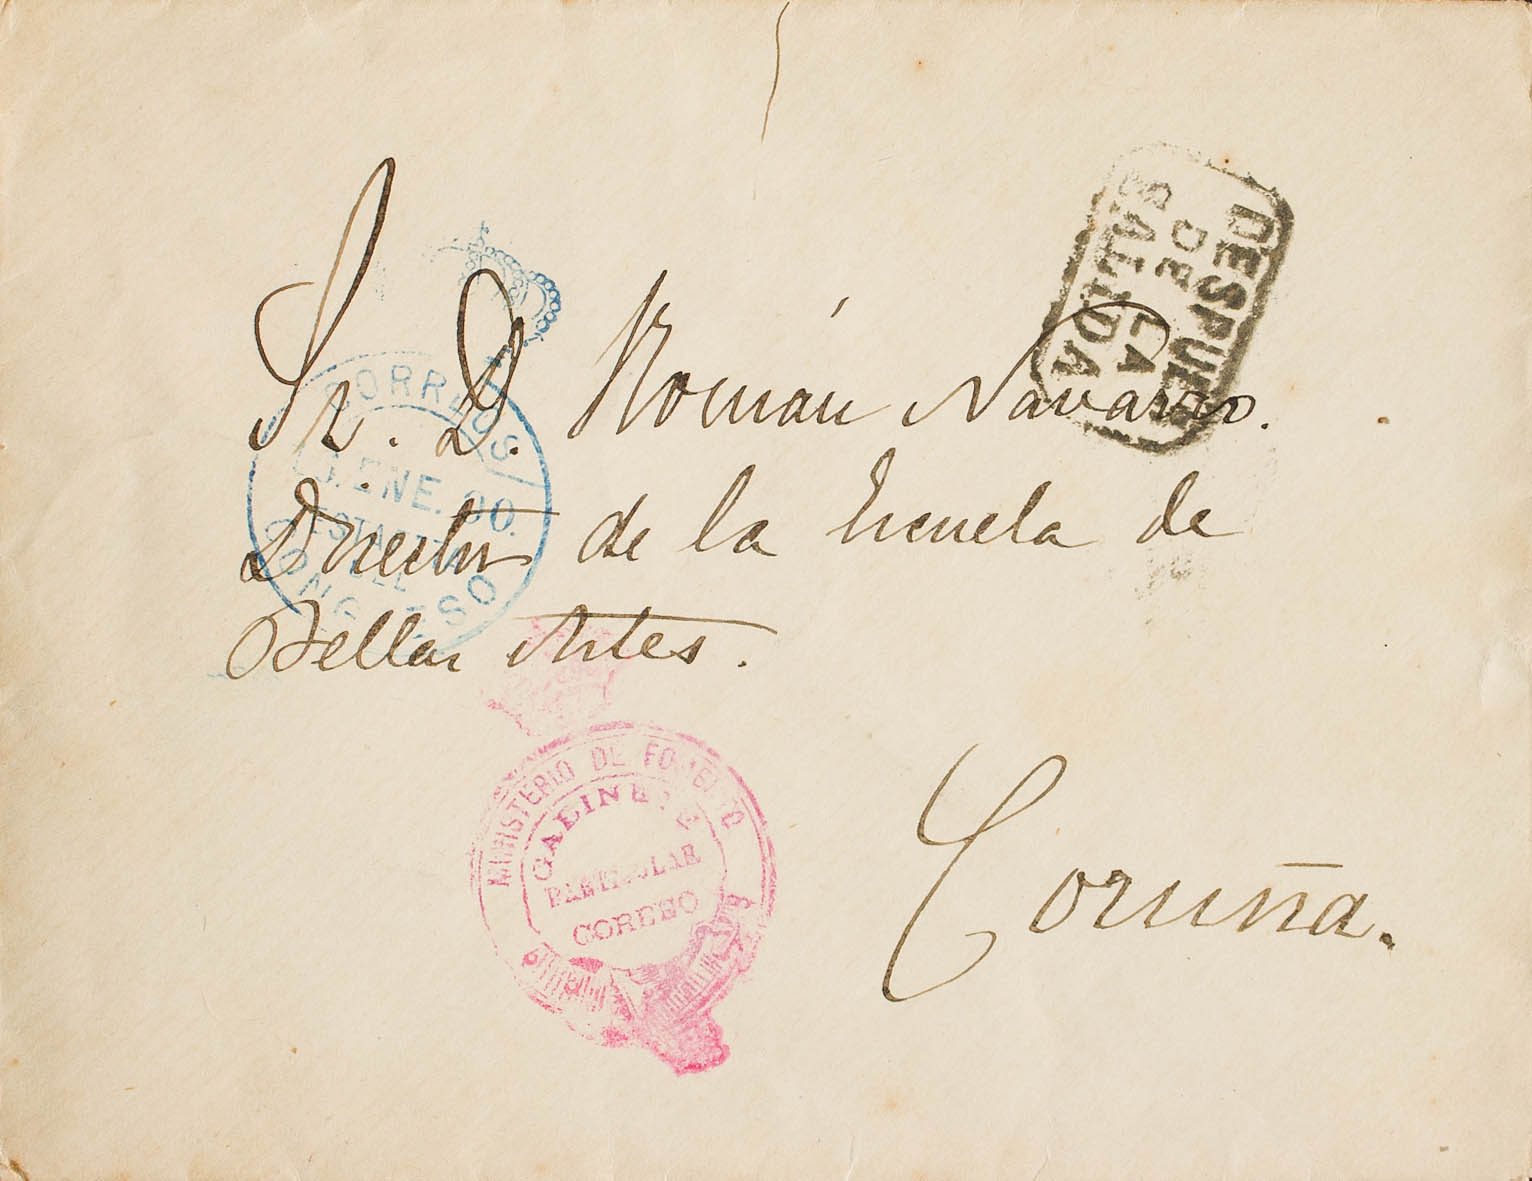 DESPUES
DE LA
SALIDA
Sr. D. Román Navarro.
Director de la Escuela de
Bellas Artes.
Coruña.
CORREOS
ENE. 00.
ESTAFETA
DEL
CONGRESO
MINISTERIO DE FOMENTO
GABINETE
PARTICULAR
CORREO